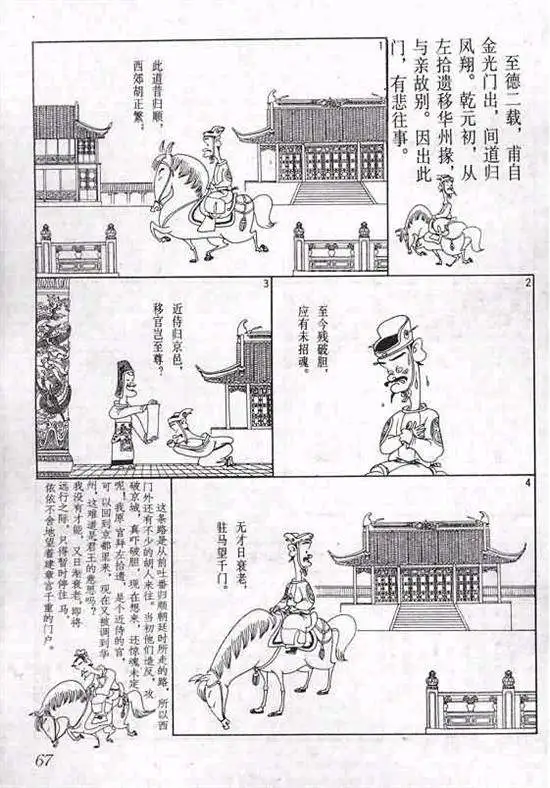 至德二载，甫自
金光门出，间道归
凤翔。乾元初，从
左拾遗移华州掾，
与亲故别。因出此
门，有悲往事。
1
此道昔归顺，
西郊胡正繁；
2
至今残破胆，
应有未招魂。
3
近侍归京邑，
移官岂至尊？
4
无才日衰老，
驻马望千门。
这条路是从前吐番归顺朝廷时所走的路，所以西
门外还有不少的胡人来往。当初他们造反，攻
破京城，真吓破胆，现在想来，还惊魂未定
呢！我原官拜左拾遗，是个近侍的官，
可以回到京都里来，现在又被调到华
州，这难道是君王的意思吗？
我没有才能，又日渐衰老，即将
远行之际，只得暂时停住马，
依依不舍地望着建章宫千重的门户。
67